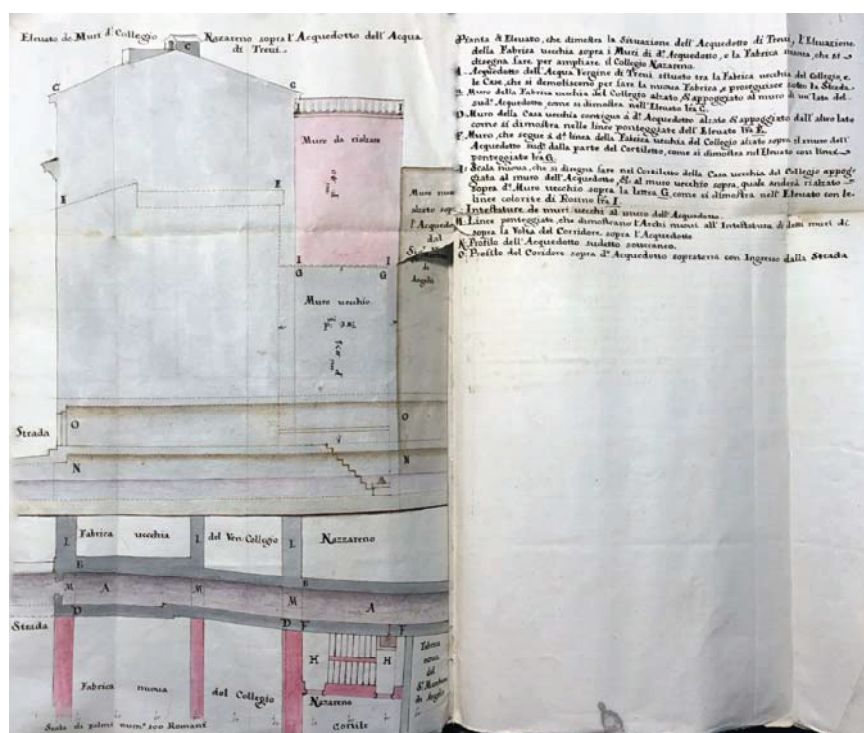 Eleuato de Muri d'. Collegio Nazareno sopra l'Acquedotto dell'Acqua
di Treui.
C
C
C
I
I
Muro da rialzare
E
E
I
I
G
G
Muro uecchio
Muro
alzato
l'Acquedo
dal
di
Angelis
Strada
O
O
N
N
A
Fabrica uecchia del Ven. Collegio Nazzareno
L
L
L
B
B
M
A
M
M
A
D
D
F
F
Strada
H
H
Fabrica nuoua del Collegio Nazareno
Fabrica
nuoua
del
de Angelis
Cortile
Scala di palmi num.º 100 Romani
Pianta & Eleuato, che dimostra la Situazione dell'Acquedotto di Treui, l'Eleuazione
della Fabrica uecchia sopra i Muri di d.º Acquedotto, e la Fabrica nuoua, che si
disegna fare per ampliare il Collegio Nazareno.
A. Acquedotto dell'Acqua Vergine di Treui situato tra la Fabrica uecchia del Collegio, e
le Case, che si demoliscono per fare la nuoua Fabrica, e proseguisce sotto la Strada.
B. Muro della Fabrica uecchia del Collegio alzato, & appoggiato al muro di un'lato del
sud.º Acquedotto, come si dimostra nell'Eleuato lrã C.
D. Muro della Casa uecchia contigua a d.º Acquedotto alzato & appoggiato dall'altro lato
come si dimostra nelle linee ponteggiate dell'Eleuato lrã E.
F. Muro, che segue à d.ª linea della Fabrica uecchia del Collegio alzato sopra il muro dell'
Acquedotto sud.º dalla parte del Cortiletto, come si dimostra nell'Eleuato con linee
ponteggiate lrã G.
H. Scala nuoua, che si disegna fare nel Cortiletto della Casa uecchia del Collegio appog-
giata al muro dell'Acquedotto, & al muro uecchio sopra, quale anderà rialzato
sopra d.º Muro uecchio sopra la lettera G, come si dimostra nell'Eleuato con le
linee colorite di Rosino lrã I.
L. Intestature de muri uecchi al muro dell'Acquedotto.
M. Linee ponteggiate, che dimostrano l'Archi nuoui all'Intestatura di detti muri di
sopra la Volta del Corridore sopra l'Acquedotto
N. Profilo dell'Acquedotto sudetto sotteraneo.
O. Profilo del Coridore sopra d.º Acquedotto sopraterra con Ingresso dalla Strada